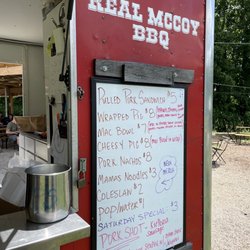 REAL MCCOY
BBQ
PULLED PORK SANDWICH $5
WRAPPED PIG $8
MAC BOWL $7
CHEESY PIG $8
PORK NACHOS $8
MAMAS NOODLES $3
COLESLAW $2
POP/WATER $1
NEW MENU
SATURDAY SPECIAL $3
PORK SHOT -
SAUSAGE